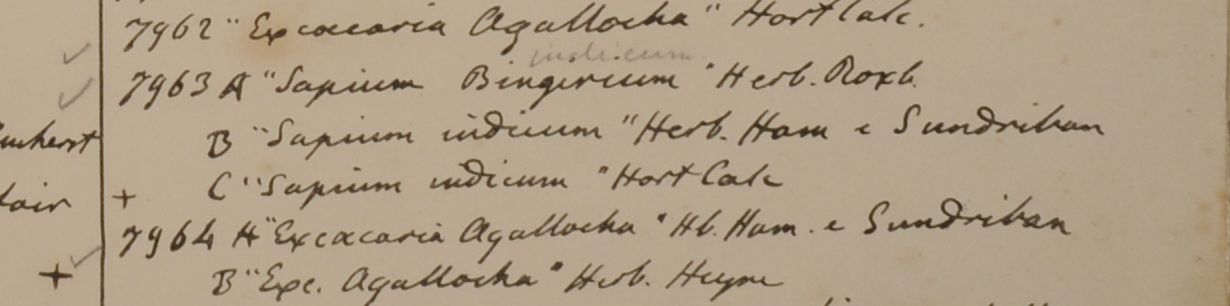 7962 "Excoecaria Agallocha" Hort Calc.
indicum
7963 A "Sapium Bingerium" Herb. Roxb.
B "Sapium indicum" Herb. Ham e Sundriban
C "Sapium indicum" Hort Calc
7964 A "Excoecaria Agallocha" Hb. Ham. e Sundriban
B "Exc. Agallocha" Herb. Heyne